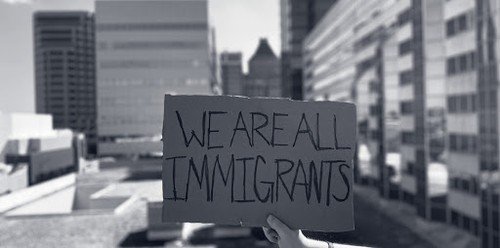 WE ARE ALL
IMMIGRANTS